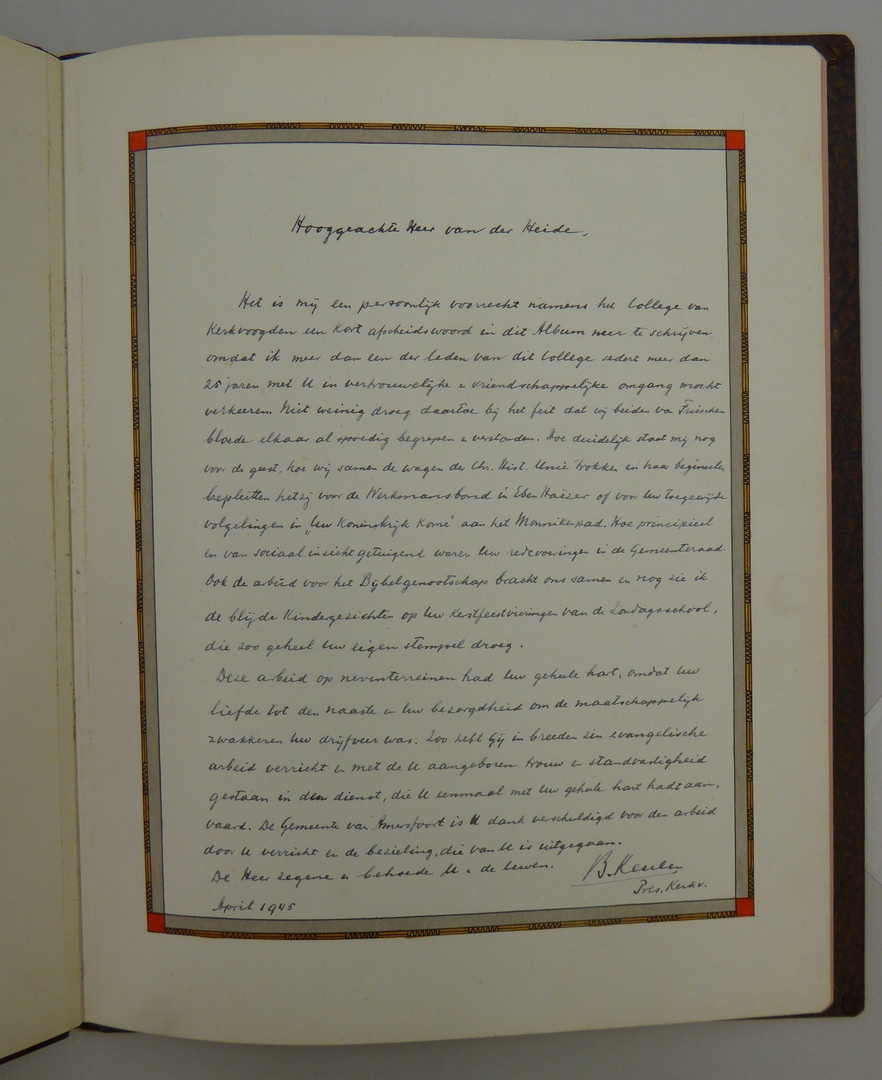 Hooggeachte Heer van der Heide,
Het is mij een persoonlijk voorrecht namens het College van
Kerkvoogden een kort afscheidswoord in dit Album neer te schrijven
omdat ik meer dan een der leden van dit College sedert meer dan
25 jaren met U in vertrouwelijke & vriendschappelijke omgang mocht
verkeeren. Niet weinig droeg daartoe bij het feit dat wij beiden van Frieschen
bloede elkaar al spoedig begrepen & verstonden. Hoe duidelijk staat mij nog
voor de geest, hoe wij samen de wagen der Chr. Hist. Unie trokken en haar beginselen
bepleitten hetzij voor de Werkmansbond in Eben Haëzer of voor Uw toegewijde
volgelingen in "Uw Koninkrijk Kome" aan het Monnikenpad. Hoe principieel
en van sociaal inzicht getuigend waren Uw redevoeringen in de Gemeenteraad.
Ook de arbeid voor het Bijbelgenootschap bracht ons samen en nog zie ik
de blijde Kindergezichten op Uw Kerstfeestvieringen van de Zondagsschool,
die zoo geheel Uw eigen stempel droeg.
Deze arbeid op neventerreinen had Uw geheele hart, omdat Uw
liefde tot den naaste en Uw bezorgdheid om de maatschappelijk
zwakkeren Uw drijfveer was. Zoo hebt Gij in breeden zin evangelische
arbeid verricht en met de U aangeboren trouw en standvastigheid
gestaan in den dienst, die U eenmaal met Uw geheele hart hadt aan-
vaard. De Gemeente van Amersfoort is U dank verschuldigd voor den arbeid
door U verricht en de bezieling, die van U is uitgegaan.
De Heer zegene & behoede U & de Uwen.
B. Keulen
Pres. Kerkv.
April 1945